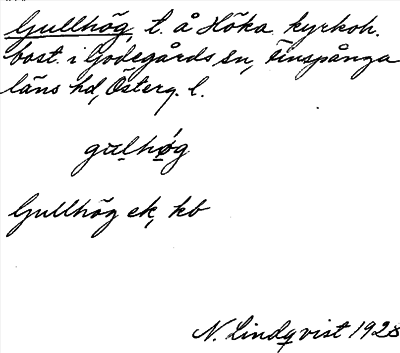 Gullhög, t. å Höka kyrkoh.
bost. i Godegårds sn, Finspånga
läns hd, Österg. l.
gulhög
Gullhög ek, kb
N. Lindqvist 1928